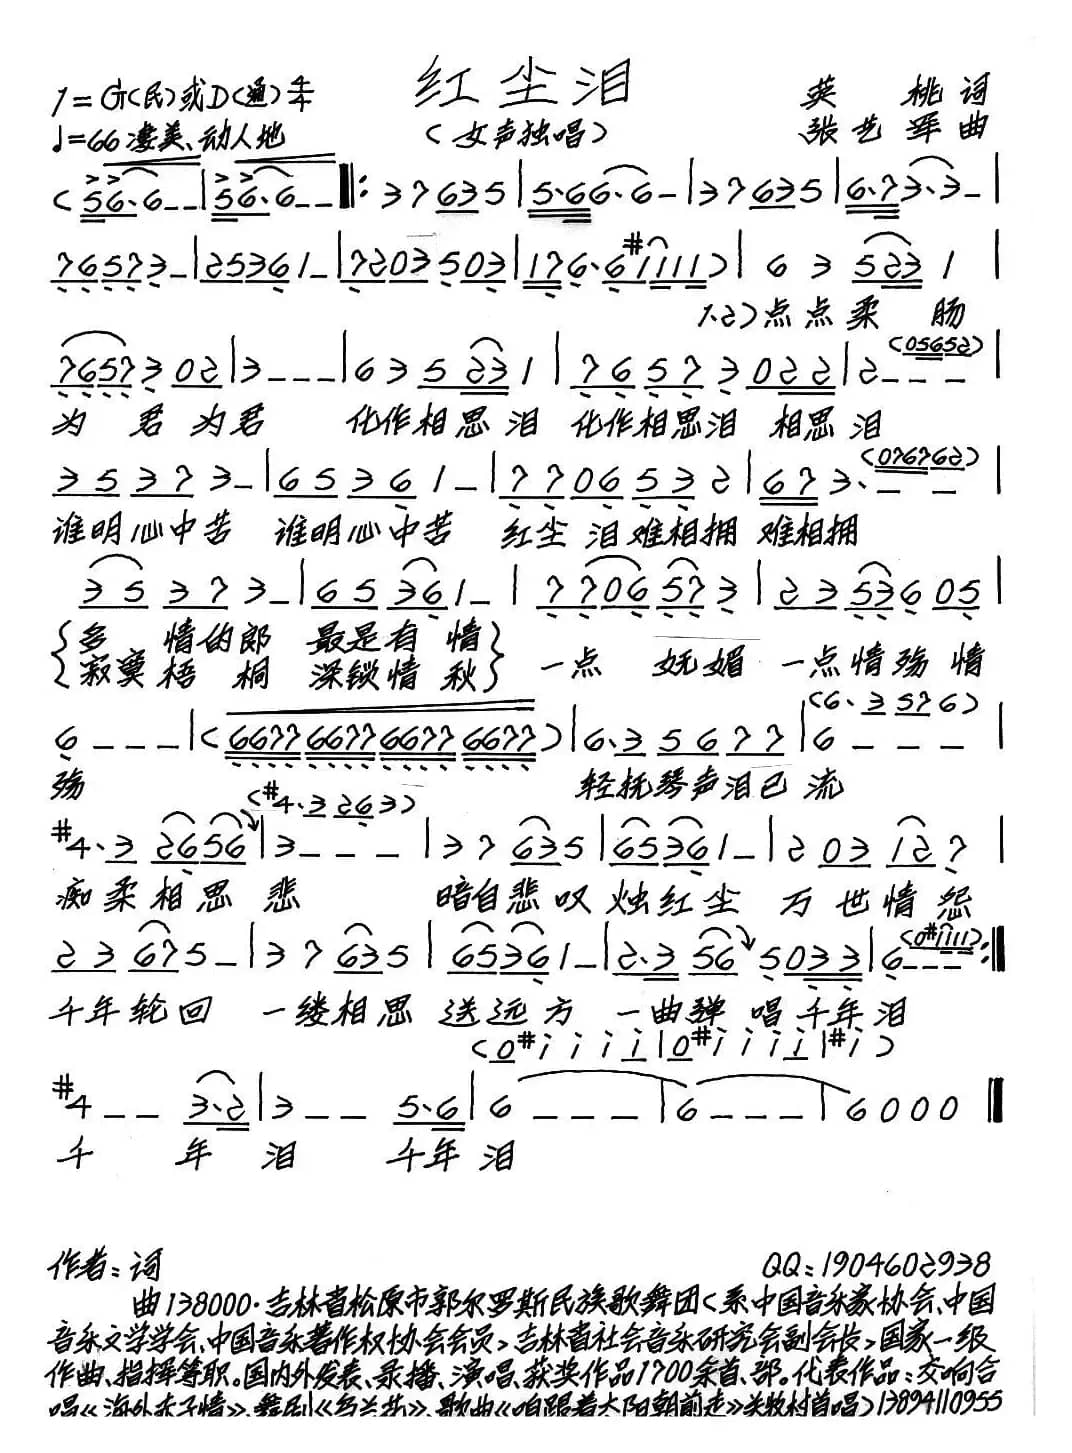 红尘泪
1=G(民)或D(通)4/4
英 桃 词
♩=66 凄美、动人地
(女声独唱)
张艺军 曲
(56·6--|56·6--‖:37635|5·66·6-|37635|6·73·3-|
76573-|25361-|7203503|176·6#1111)|635231|
1.2)点点柔肠
7657302|3---|635231|76573022|2---|(05652)
为君为君 化作相思泪 化作相思泪 相思泪
35373-|65361-|7706532|673·--|(076762)
谁明心中苦 谁明心中苦 红尘泪难相拥 难相拥
35373-|65361-|7706573|2353605|
{多情的郎 最是有情}
{寂寞梧桐 深锁情秋} 一点 妩媚 一点情殇情
(6·3576)
6---|(6677 6677 6677 6677)|6·35677|6---|
殇 轻抚琴声泪已流
(#4·3263)
#4·32656|3---|37635|65361-|203127|
痴柔相思悲 暗自悲叹烛红尘 万世情怨
(0#1111)
23675-|37635|65361-|2·3565033|6---:‖
千年轮回 一缕相思送远方 一曲弹唱千年泪
(0#i i i i|0#i i i i|#i)
#4--3·2|3--5·6|6---|6---|6000‖
千 年 泪 千年泪
作者:词 QQ:1904602938
曲138000·吉林省松原市郭尔罗斯民族歌舞团(系中国音乐家协会、中国
音乐文学学会、中国音乐著作权协会会员>吉林省社会音乐研究会副会长>国家一级
作曲、指挥等职。国内外发表、录播、演唱、获奖作品1700余首、部。代表作品:交响合
唱《海外赤子情》、舞剧《乌兰莎》、歌曲《咱跟着太阳朝前走》关牧村首唱)13894110955